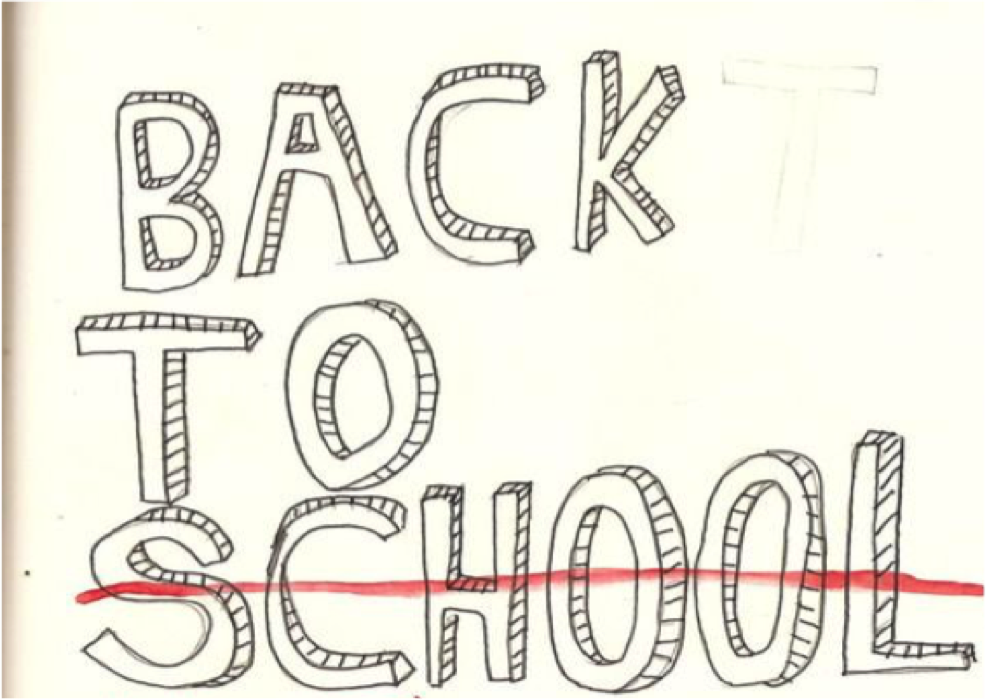 BACK T
TO
SCHOOL